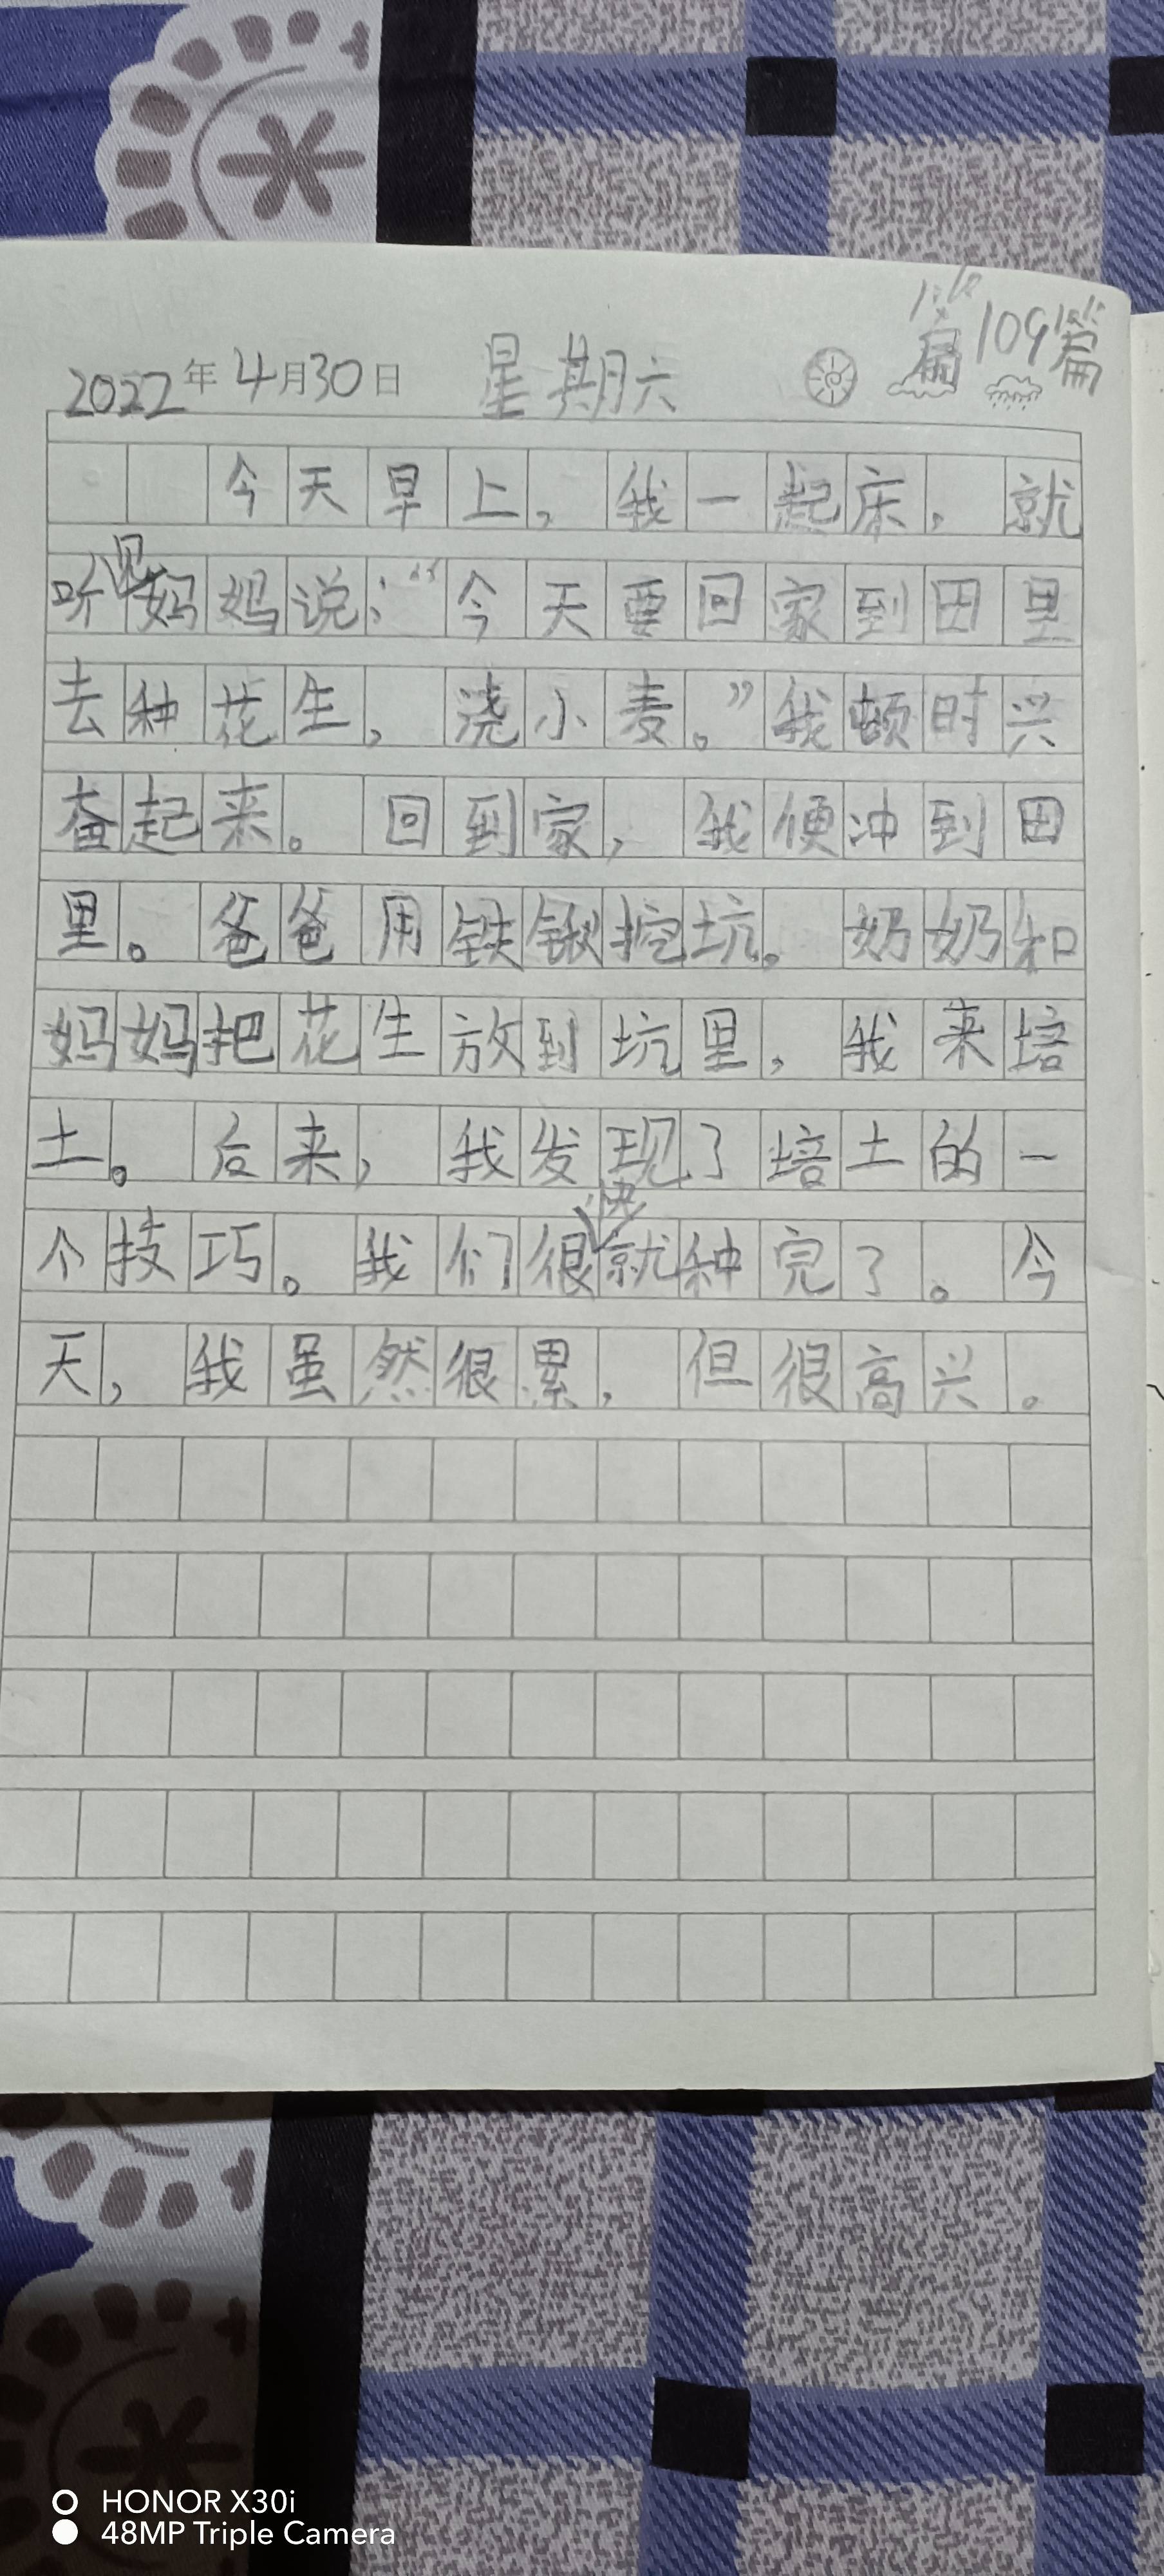 篇109篇
2022年4月30日 星期六
今天早上，我一起床，就
听见妈妈说：“今天要回家到田里
去种花生，浇小麦。”我顿时兴
奋起来。回到家，我便冲到田
里。爸爸用铁锹挖坑。奶奶和
妈妈把花生放到坑里，我来培
土。后来，我发现了培土的一
个技巧。我们很快就种完了。今
天，我虽然很累，但很高兴。
HONOR X30i
48MP Triple Camera